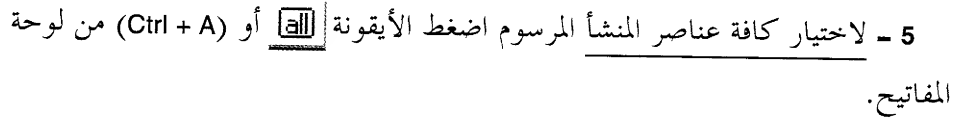 5 - لاختيار كافة عناصر المنشأ المرسوم اضغط الأيقونة all أو (Ctrl + A) من لوحة
المفاتيح.